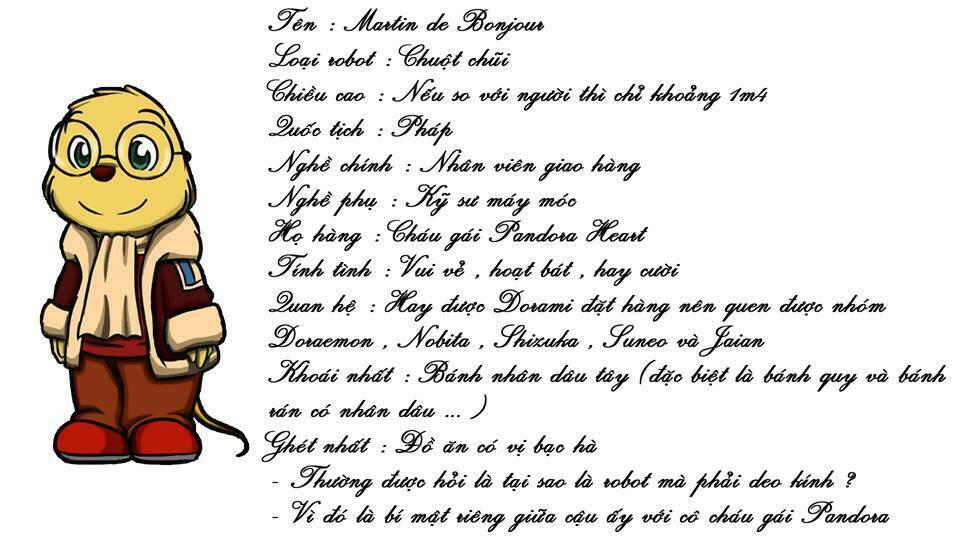 Tên : Martin de Bonjour
Loại robot : Chuột chũi
Chiều cao : Nếu so với người thì chỉ khoảng 1m4
Quốc tịch : Pháp
Nghề chính : Nhân viên giao hàng
Nghề phụ : Kỹ sư máy móc
Họ hàng : Cháu gái Pandora Heart
Tính tình : Vui vẻ , hoạt bát , hay cười
Quan hệ : Hay được Dorami đặt hàng nên quen được nhóm
Doraemon , Nobita , Shizuka , Suneo và Jaian
Khoái nhất : Bánh nhân dâu tây (đặc biệt là bánh quy và bánh
rán có nhân dâu ... )
Ghét nhất : Đồ ăn có vị bạc hà
- Thường được hỏi là tại sao là robot mà phải đeo kính ?
- Vì đó là bí mật riêng giữa cậu ấy với cô cháu gái Pandora